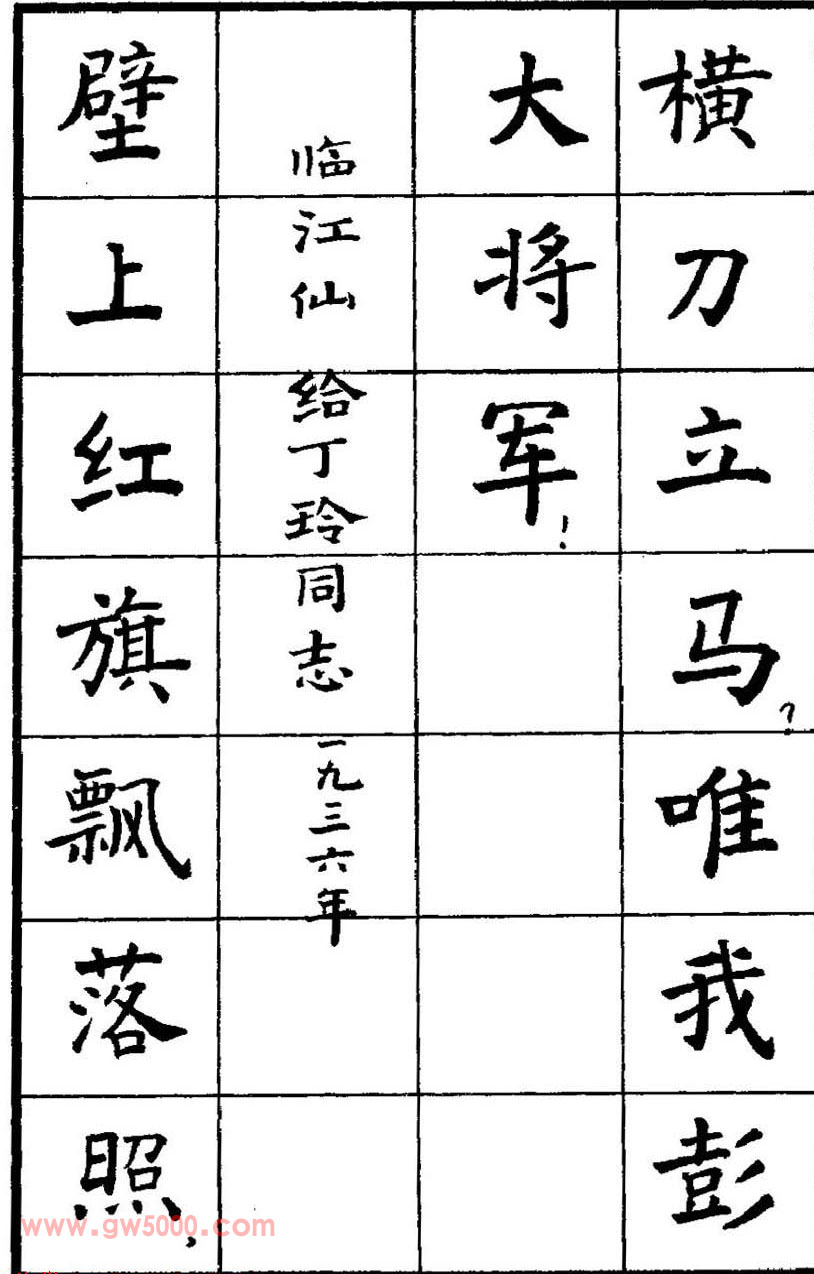 横刀立马?唯我彭
大将军!
临江仙 给丁玲同志 一九三六年
壁上红旗飘落照,
www.gw5000.com